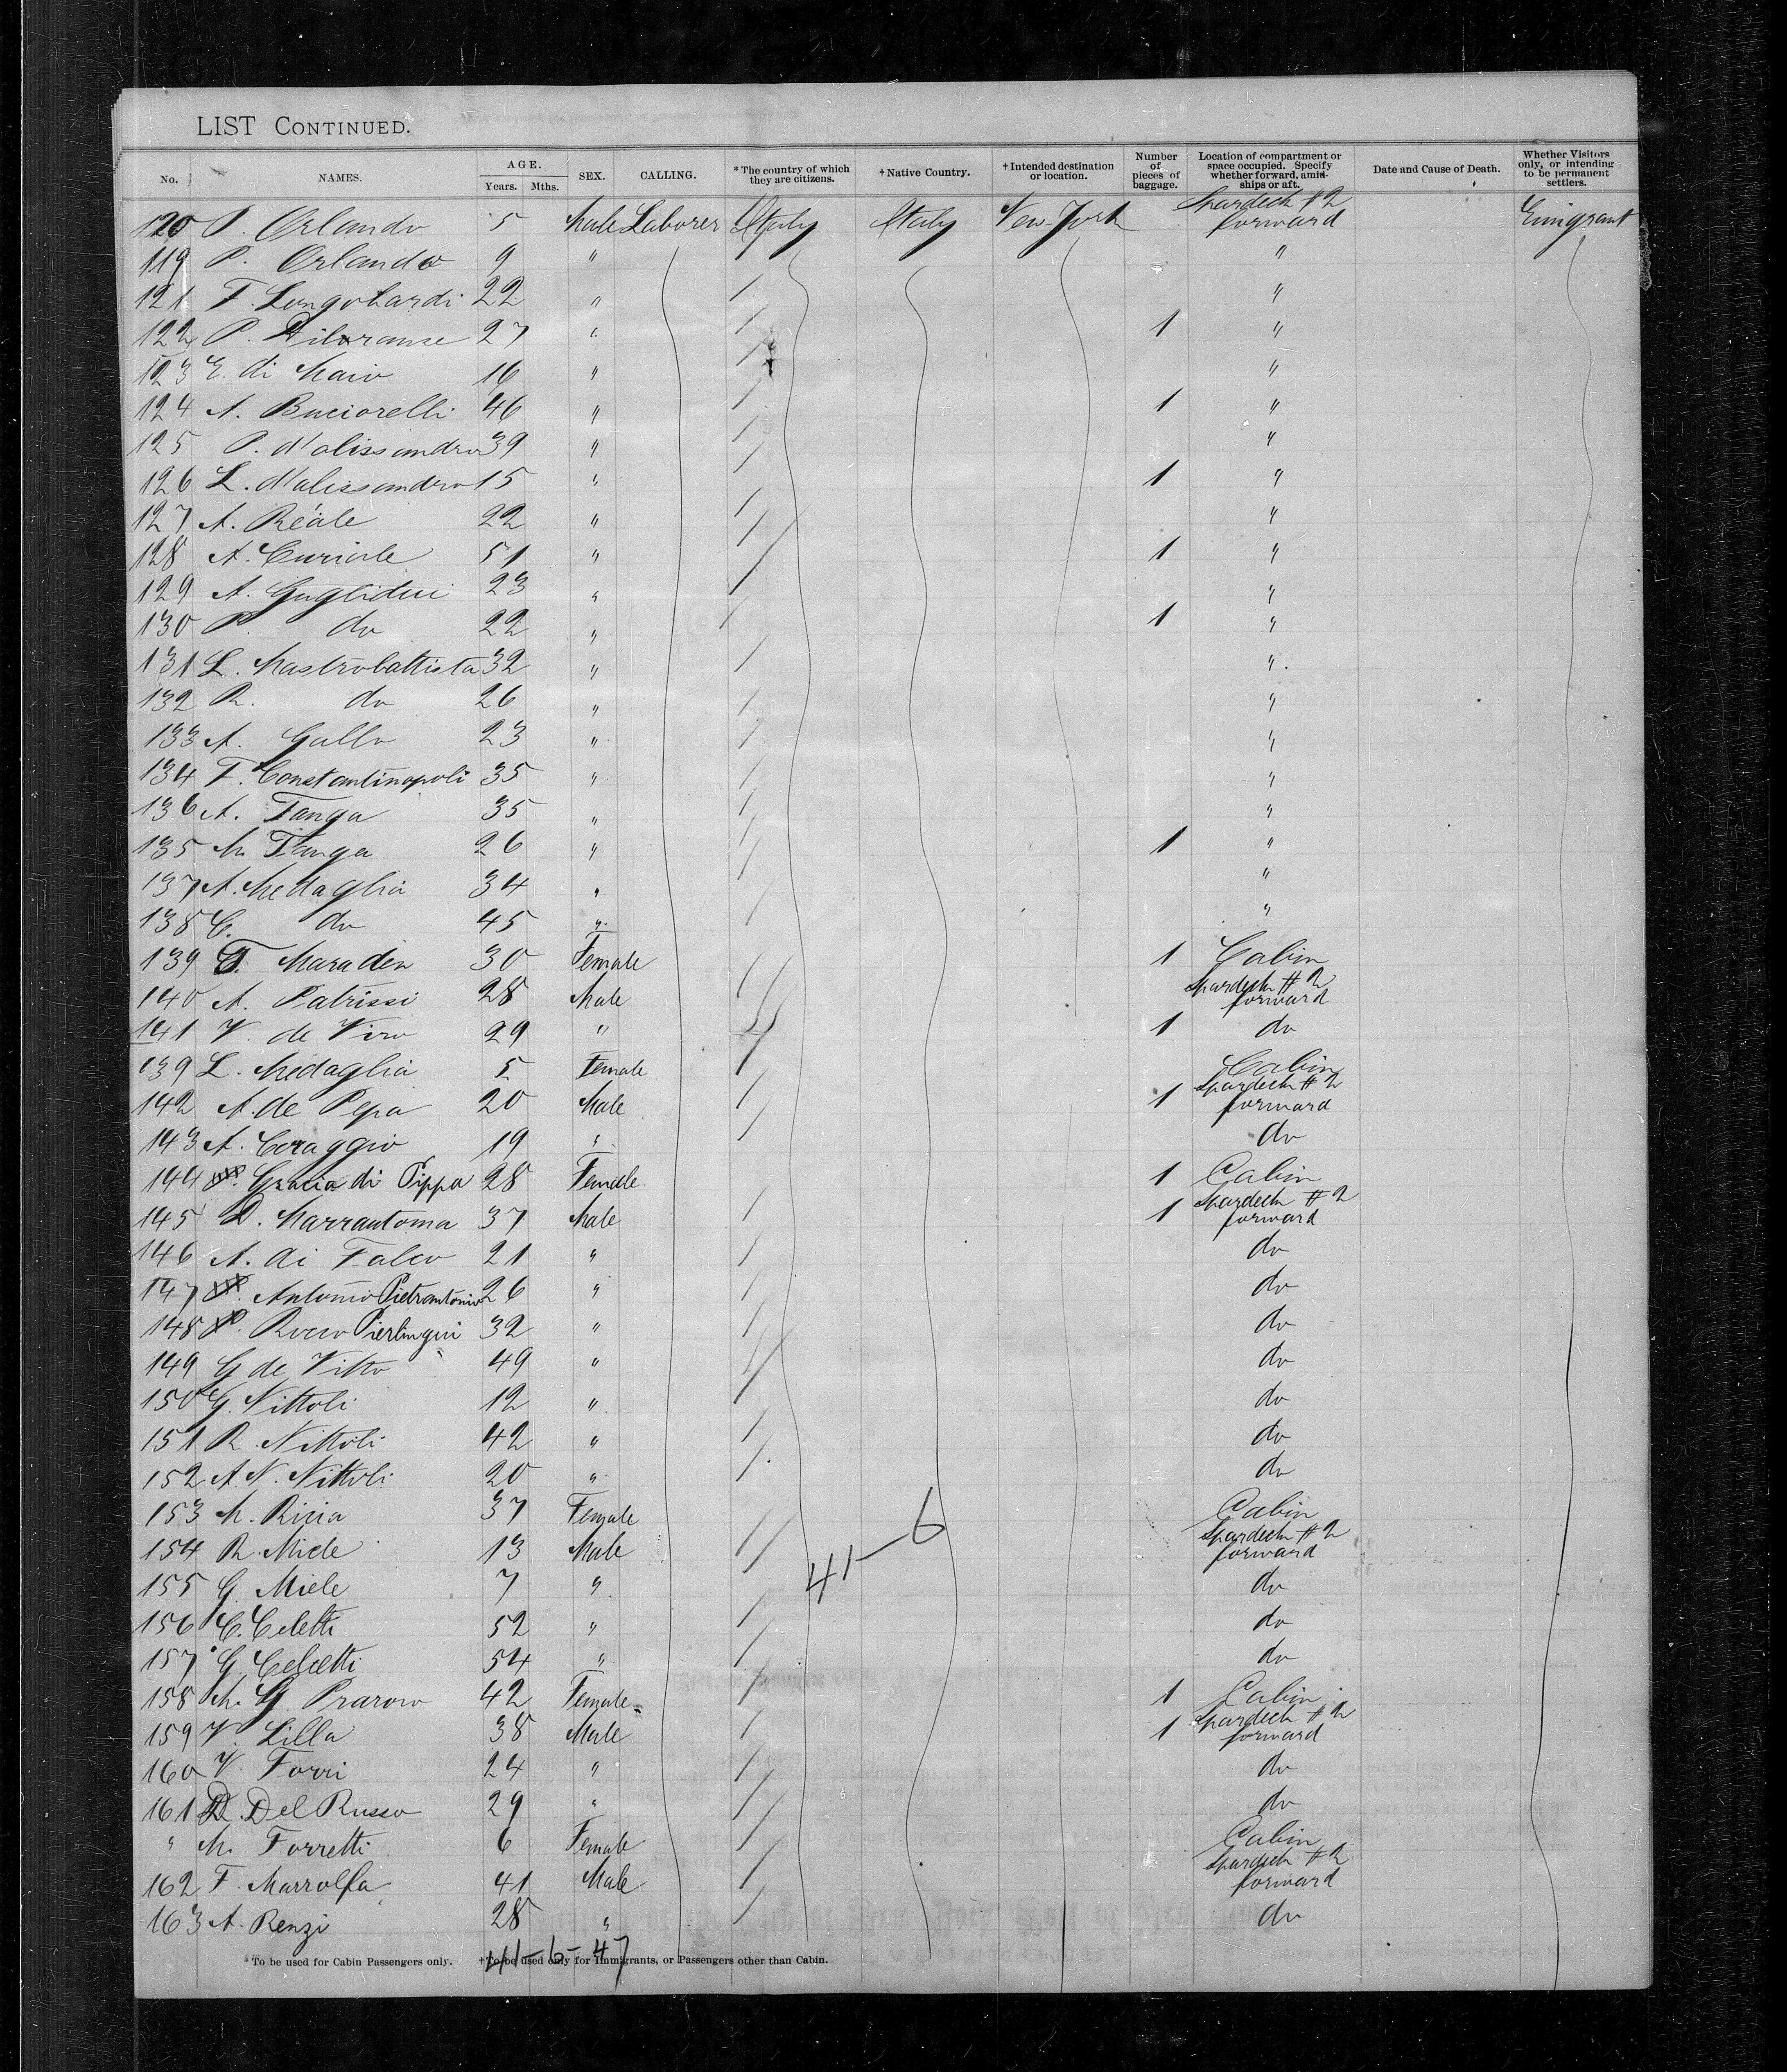 LIST CONTINUED.
No. NAMES. AGE. Years. Mths. SEX. CALLING. *The country of which they are citizens. †Native Country. †Intended destination or location. Number of pieces of baggage. Location of compartment or space occupied. Specify whether forward, amidships or aft. Date and Cause of Death. Whether Visitors only, or intending to be permanent settlers.
120 P. Orlando 5 Male Laborer Italy Italy New-York Spardeck #2 forward Emigrant
119 P. Orlando 9 " "
121 F. Longobardi 22 " "
122 P. 27 " 1 "
123 E. di Maio 16 " "
124 A. Buciorelli 46 " 1 "
125 P. d'alissandro 39 " "
126 L. d'alessandro 15 " 1 "
127 A. Reale 22 " "
128 A. Curiale 51 " 1 "
129 A. 23 " "
130 P. do 22 " 1 "
131 L. Mastrobattista 32 " "
132 R. do 26 " "
133 A. Gallo 23 " "
134 F. Constantinopoli 35 " "
136 A. Tanga 35 " "
135 M. Tanga 26 " 1 "
137 A. Medaglia 34 " "
138 C. do 45 " "
139 T. Maraden 30 Female 1 Cabin
140 A. Patrissi 28 Male Spardeck #2 forward
141 V. de Viro 29 " 1 do
139 L. Medaglia 5 Female Cabin
142 A. de Pepa 20 Male 1 Spardeck #2 forward
143 A. Coraggio 19 " do
144 Gracia di Pippa 28 Female 1 Cabin
145 D. Marrantoma 37 Male 1 Spardeck #2 forward
146 A. di Falco 21 " do
147 Antonio Pietrantonio 26 " do
148 P. Rocco Pierlingui 32 " do
149 G de Vitto 49 " do
150 G. Nittoli 12 " do
151 R. Nittoli 42 " do
152 A. N. Nittoli 20 " do
153 M. Ricia 37 Female Cabin
154 R. Miele 13 Male Spardeck #2 forward
155 G. Miele 7 " do
41-6
156 C. Celetti 52 " do
157 G. Celcetti 54 " do
158 M. G. Prarow 42 Female 1 Cabin
159 V. Lilla 38 Male 1 Spardeck #2 forward
160 V. Torri 24 " do
161 D. Del Russo 29 " do
" M. Forretti 6 Female Cabin
162 F. Marrolfa 41 Male Spardeck #2 forward
163 A. Renzi 28 " do
41-6-47
*To be used for Cabin Passengers only. †To be used only for Immigrants, or Passengers other than Cabin.